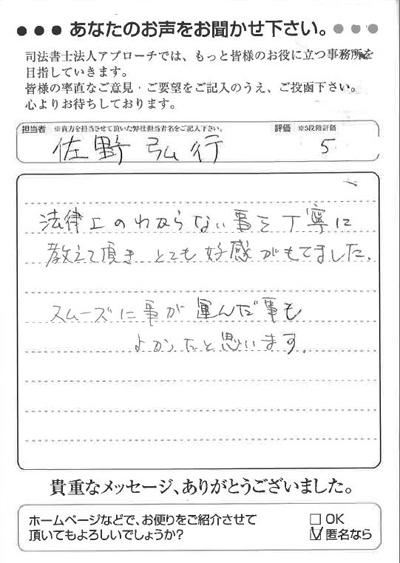 ●●●あなたのお声をお聞かせ下さい。●●●
司法書士法人アプローチでは、もっと皆様のお役に立つ事務所を
目指していきます。
皆様の率直なご意見・ご要望をご記入のうえ、ご投函下さい。
心よりお待ちしております。
担当者 ※貴方を担当させて頂いた弊社担当者名をご記入下さい。 評価 ※5段階評価
佐野弘行 5
法律上のわからない事を丁寧に
教えて頂き とても好感がもてました。
スムーズに事が運んだ事も
よかったと思います。
貴重なメッセージ、ありがとうございました。
ホームページなどで、お便りをご紹介させて
頂いてもよろしいでしょうか?
□ OK
☑ 匿名なら